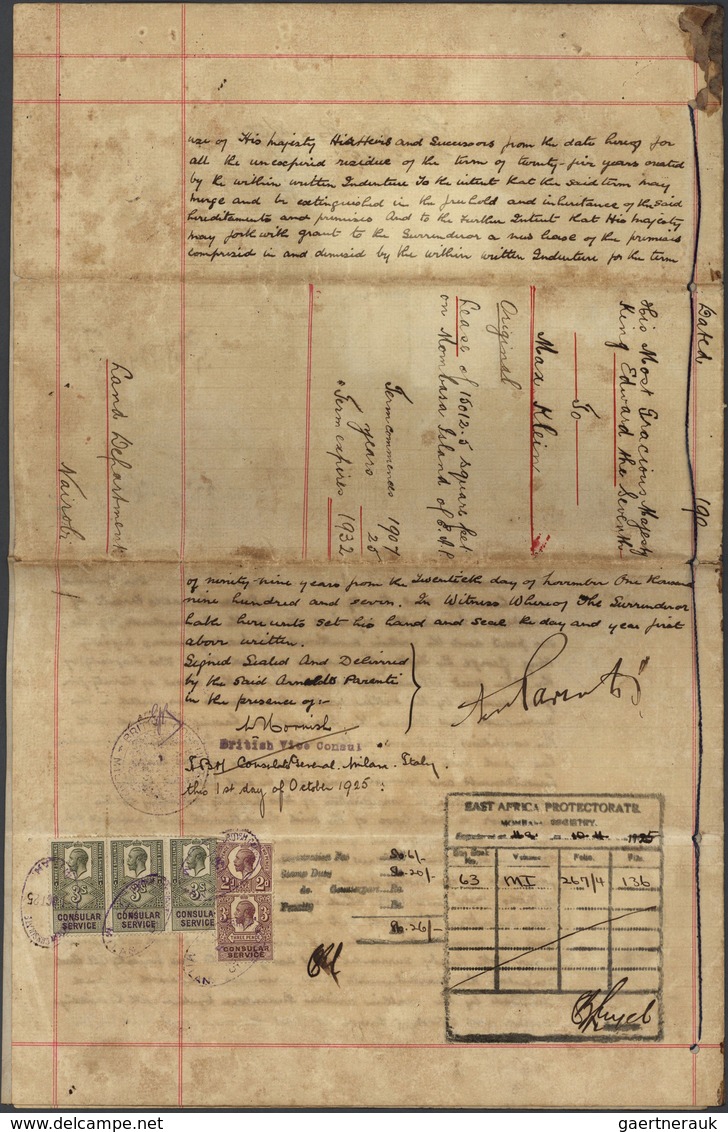 use of His Majesty His Heirs and Successors from the date hereof for
all the unexpired residue of the term of twenty-five years created
by the within written Indenture To the intent that the said term may
merge and be extinguished in the freehold and inheritance of the said
hereditaments and premises And to the further Intent that His Majesty
may forthwith grant to the Surrenderor a new lease of the premises
comprised in and demised by the within written Indenture for the term
Dated 190
His Most Gracious Majesty
King Edward the Seventh
To
Max Klein
Original
Lease of 15012.5 square feet
on Mombasa Island of E.A.P.
Term commences 1907
years 25
Term expires 1932
Land Department
Nairobi
of ninety-nine years from the Twentieth day of November One thousand
nine hundred and seven. In Witness Whereof The Surrenderor
hath hereunto set his hand and seal the day and year first
above written.
Signed Sealed And Delivered
by the said Arnoldo Parenti
in the presence of:-
British Vice Consul
H.B.M. Consulate General. Milan. Italy.
this 1st day of October 1925.
EAST AFRICA PROTECTORATE.
MOMBASA REGISTRY.
1925
Volume Folio File
63 MI 267/4 136
Registration Fee Sh. 6/-
Stamp Duty Sh. 20/-
do. Counterpart Rs.
Penalty Rs.
Sh. 26/-
3s 3s 3s 2d 2d
CONSULAR SERVICE
CONSULAR SERVICE
CONSULAR SERVICE
3d
THREE PENCE
CONSULAR SERVICE
gaertnerauk